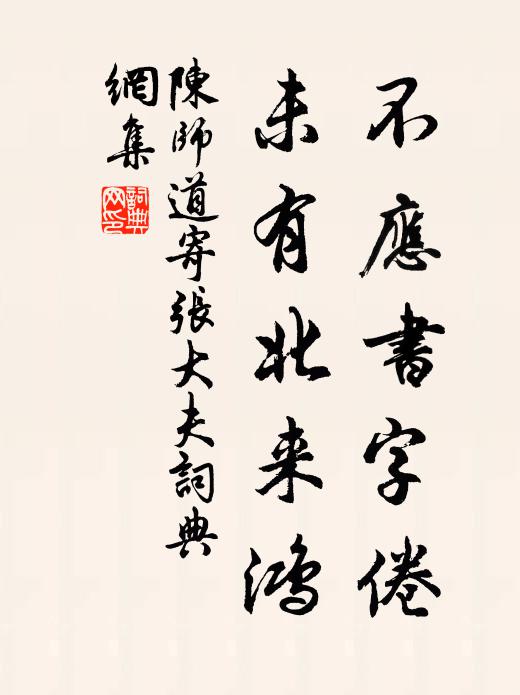 不應書字倦
未有北来鴻
陳師道寄張大夫詞典
網集
詞典
网印